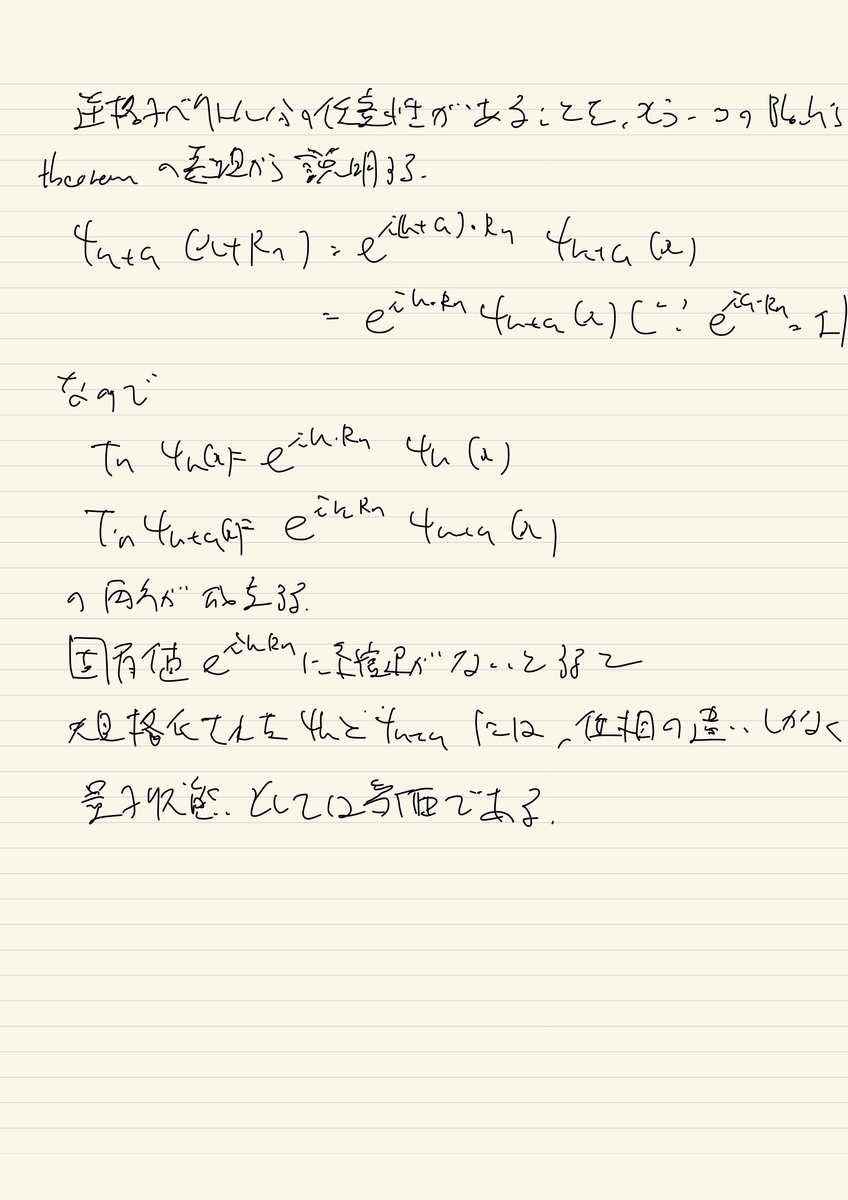 逆格子ベクトル分の任意性があることを、もう一つの Bloch's
theorem の表現から説明する.
ψ_{k+G} (x+R_n) = e^{i(k+G)・R_n} ψ_{k+G} (x)
= e^{ik・R_n} ψ_{k+G} (x) (∵ e^{iG・R_n} = 1)
なので
T_n ψ_k(x) = e^{ik・R_n} ψ_k (x)
T_n ψ_{k+G}(x) = e^{ik R_n} ψ_{k+G} (x)
の両方が成立する.
固有値 e^{ik R_n} に縮退がないとすると
規格化された ψ_k と ψ_{k+G} には、位相の違いしかなく
量子状態としては等価である.